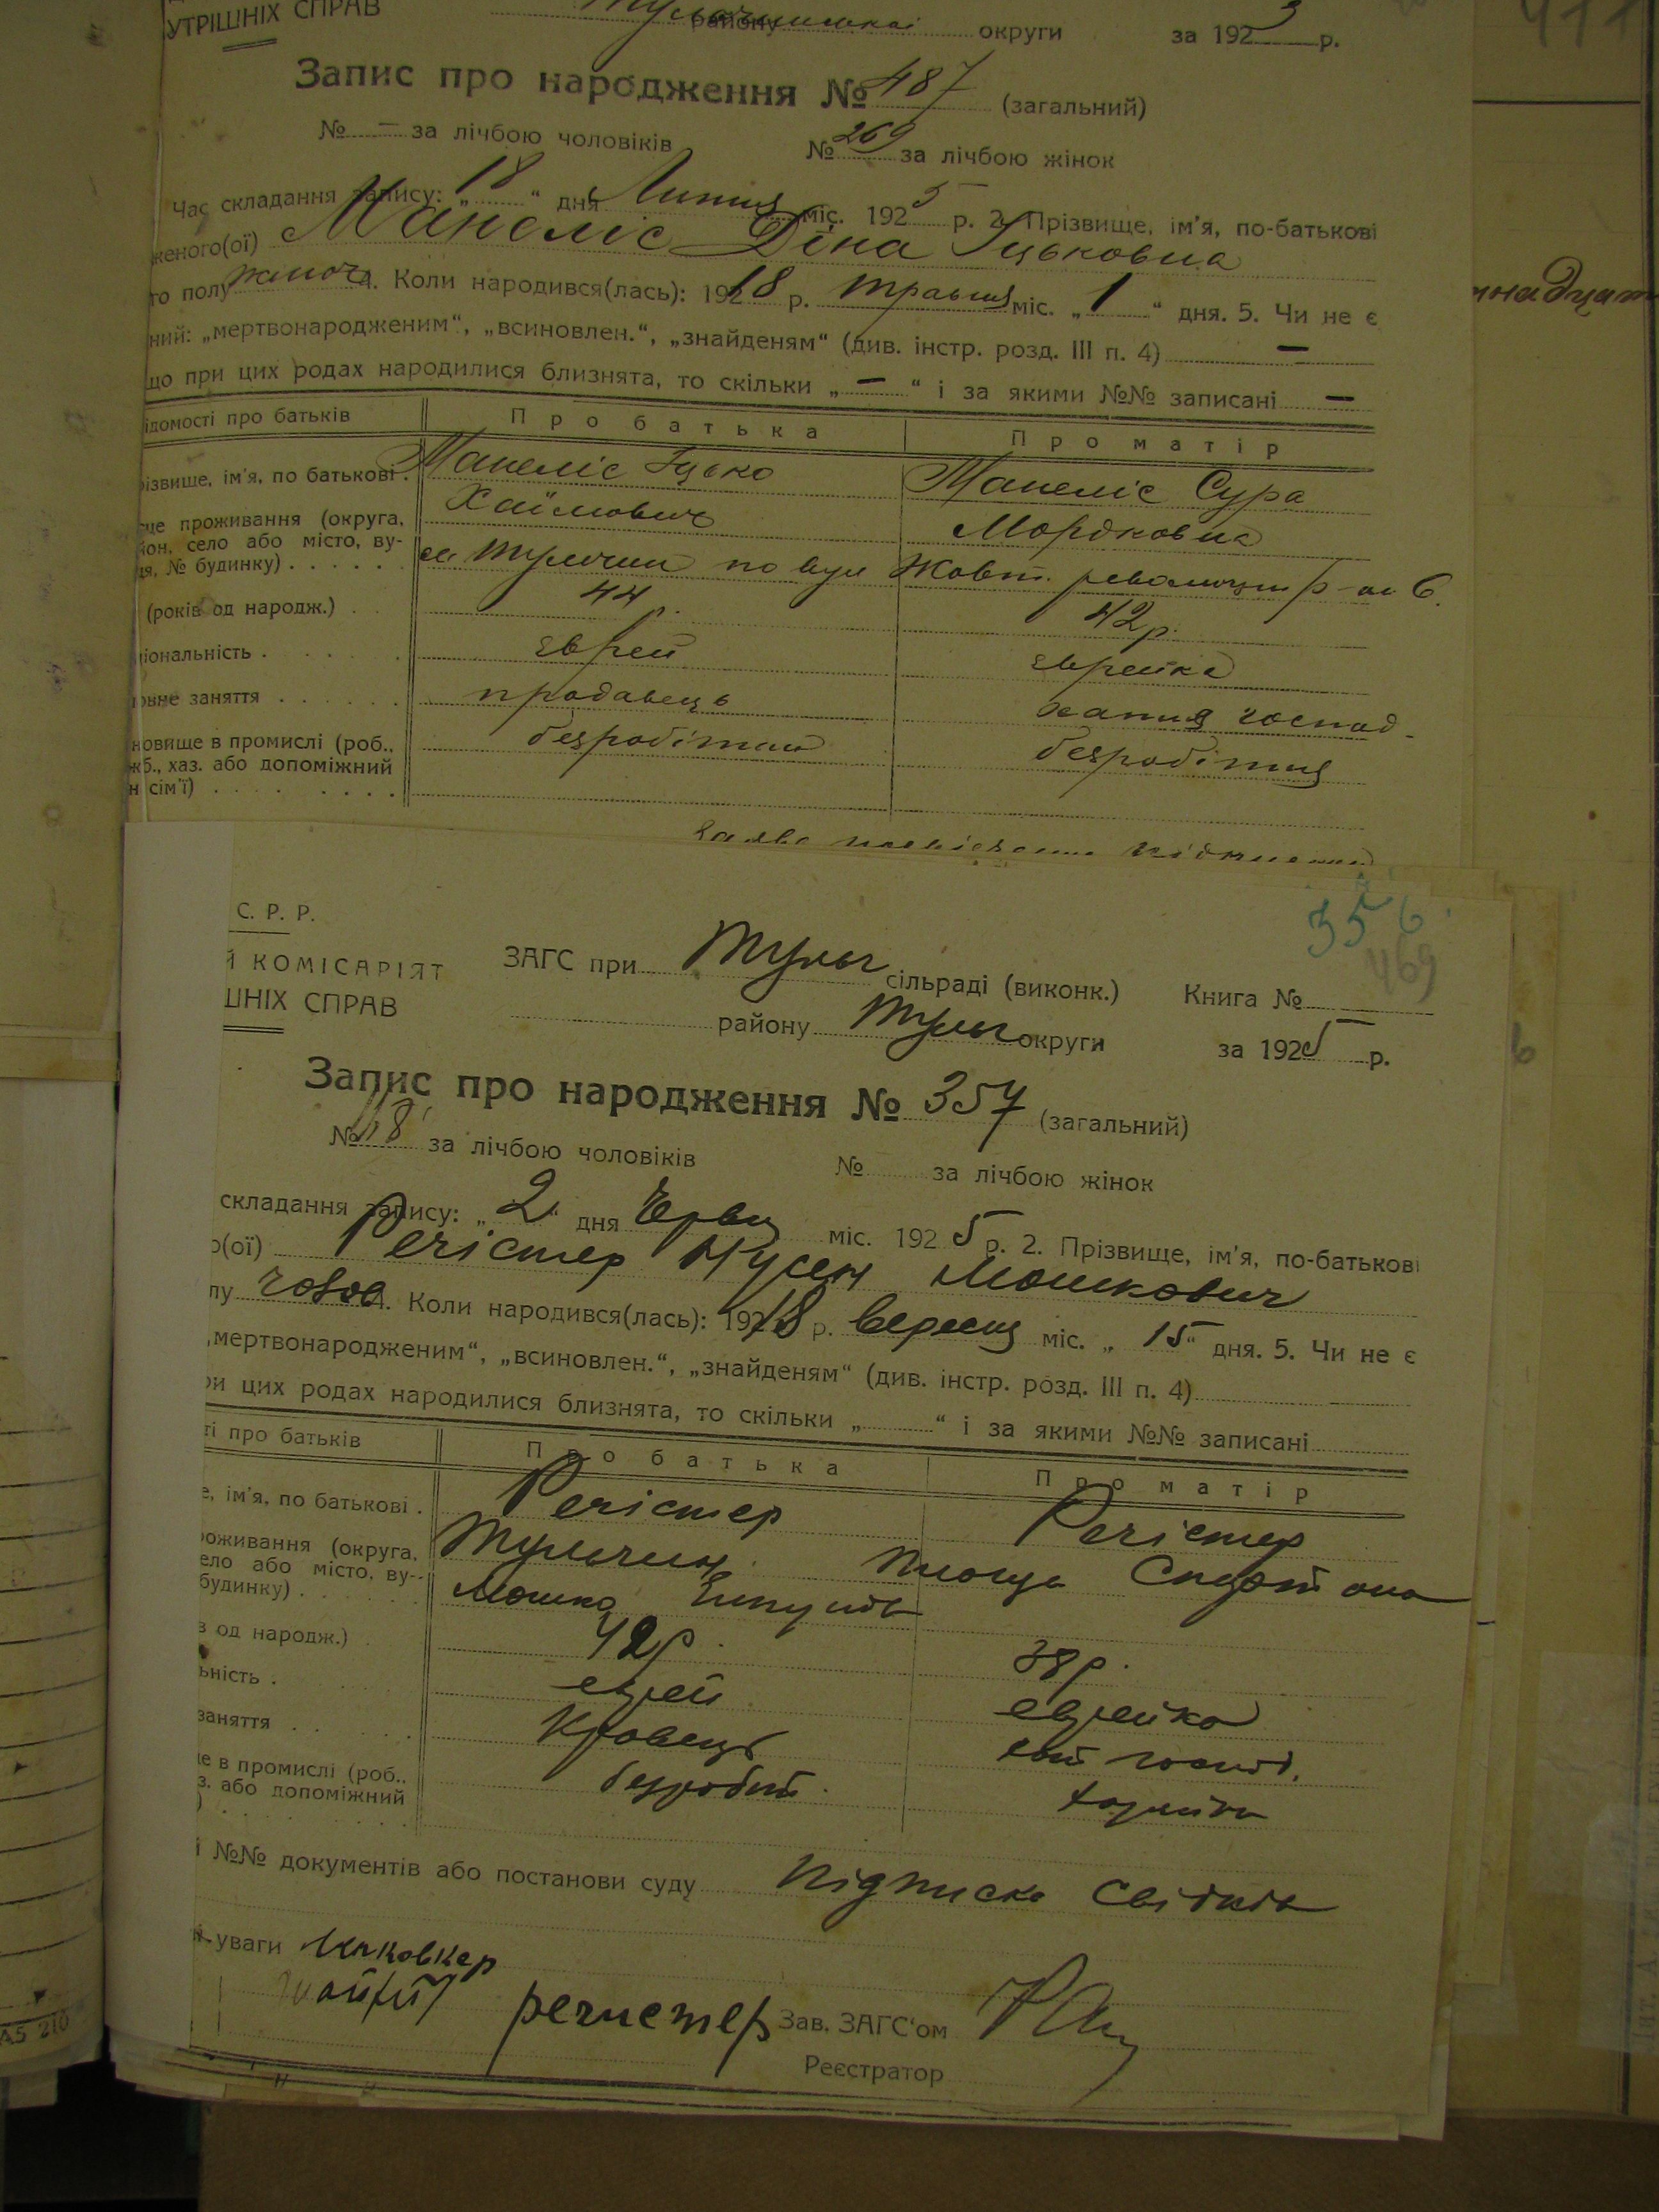 УТРІШНІХ СПРАВ
району округи за 192 р.
411
Запис про народження № 487 (загальний)
№ — за лічбою чоловіків № 269 за лічбою жінок
Час складання запису: „18“ дня Липня міс. 1925 р. 2. Прізвище, ім'я, по-батькові
женого(ої) Манеліс Діна Іцьковна
го полу жіноч 4. Коли народився(лась): 19218 р. травня міс. „1“ дня. 5. Чи не є
ний: „мертвонародженим“, „всиновлен.“, „знайденям“ (див. інстр. розд. III п. 4) —
що при цих родах народилися близнята, то скільки „—“ і за якими №№ записані —
ідомості про батьків Про батька Про матір
різвище, ім'я, по батькові . Манеліс Іцько Манеліс Сура
Хаїмович Мордковна
сце проживання (округа,
йон, село або місто, ву-
ця, № будинку) . . . . . м Тульчин по вул Жовт. революции 6.
(років од народж.) . 44 р. 42 р.
ціональність . єврей єврейка
овне заняття . . . . . . продавець хатня господ.
новище в промислі (роб., безробітний безробітня
жб., хаз. або допоміжний
н сім'ї) . . . . . . . .
Заява
С. Р. Р.
356
469
Й КОМІСАРІЯТ ЗАГС при Тульч сільраді (виконк.) Книга №
ШНІХ СПРАВ району Тульч округи за 1925 р.
Запис про народження № 357 (загальний)
№ 118 за лічбою чоловіків № за лічбою жінок
складання запису: „2“ дня Червн міс. 1925 р. 2. Прізвище, ім'я, по-батькові
о(ої) Речістер Нусен Мошкович
лу чолов 4. Коли народився(лась): 19218 р. вересня міс. „15“ дня. 5. Чи не є
„мертвонародженим“, „всиновлен.“, „знайденям“ (див. інстр. розд. III п. 4)
ри цих родах народилися близнята, то скільки „ “ і за якими №№ записані
ті про батьків Про батька Про матір
е, ім'я, по батькові . Речістер Речістер
роживання (округа,
ело або місто, ву-
будинку) . Тульчин площа
Мошко
в од народж.) . 42р. 38р.
ьність . еврей еврейка
заняття . . . Кравець хат госпд.
це в промислі (роб., безробіт. хазяйка
з. або допоміжний
) . . . . . . .
і №№ документів або постанови суду Підписка Свідків
уваги
речистер Зав. ЗАГС'ом
Реєстратор
А5 210